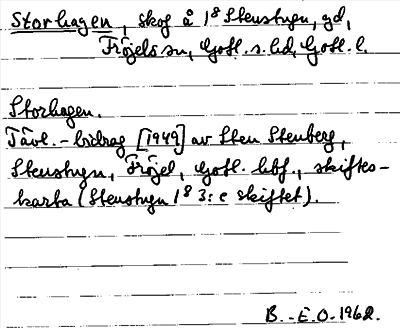 Storhagen, skog å 1⁸ Stenstugn, gd,
Fröjels sn, Gotl. s. hd, Gotl. l.
Storhagen.
Tävl.-bidrag [1949] av Sten Stenberg,
Stenstugn, Fröjel, Gotl. hbf., skiftes-
karta (Stenstugn 1⁸ 3:e skiftet).
B.-E.O. 1962.